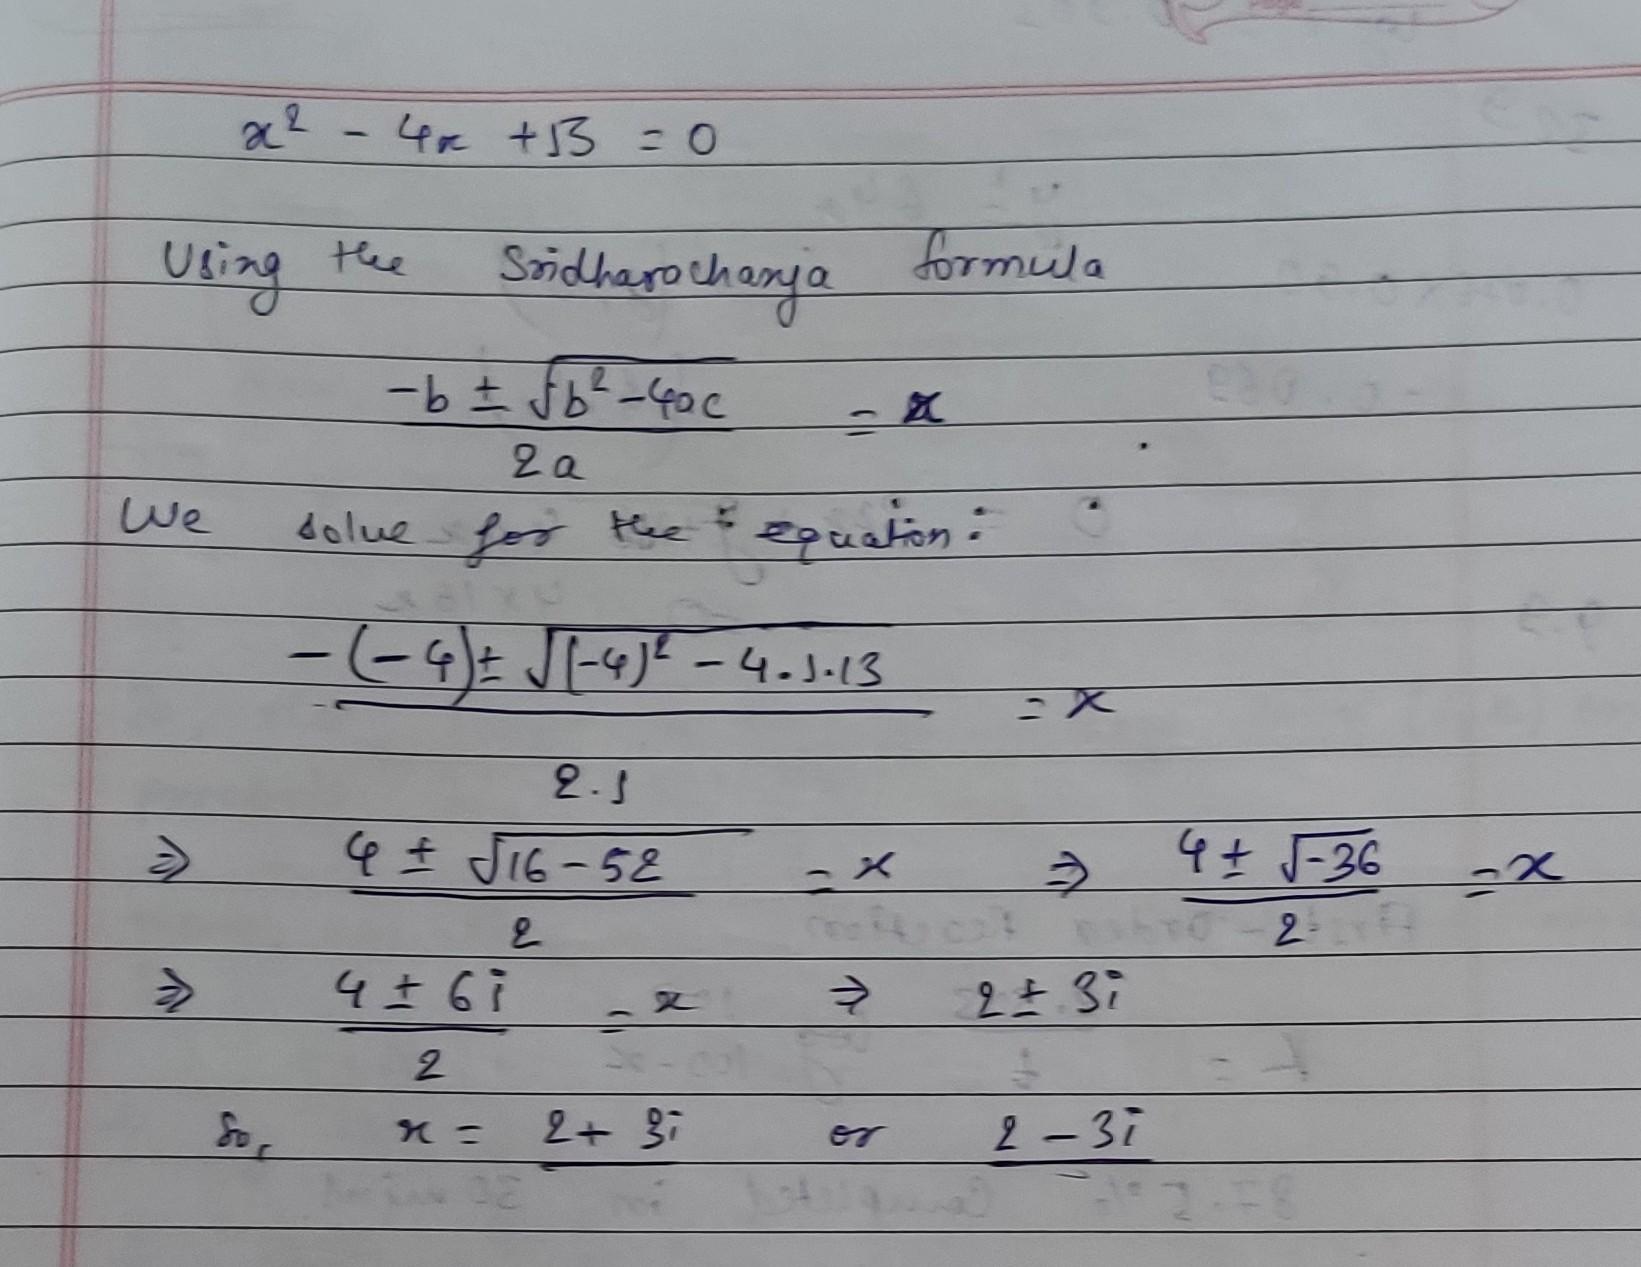 x² - 4x + 13 = 0
Using the Sridharacharya formula
(-b ± √(b² - 4ac)) / 2a = x
We solve for the equation:
(-(-4) ± √((-4)² - 4.1.13)) / 2.1 = x
⇒ (4 ± √(16 - 52)) / 2 = x ⇒ (4 ± √-36) / 2 = x
⇒ (4 ± 6i) / 2 = x ⇒ 2 ± 3i
So, x = 2 + 3i or 2 - 3i